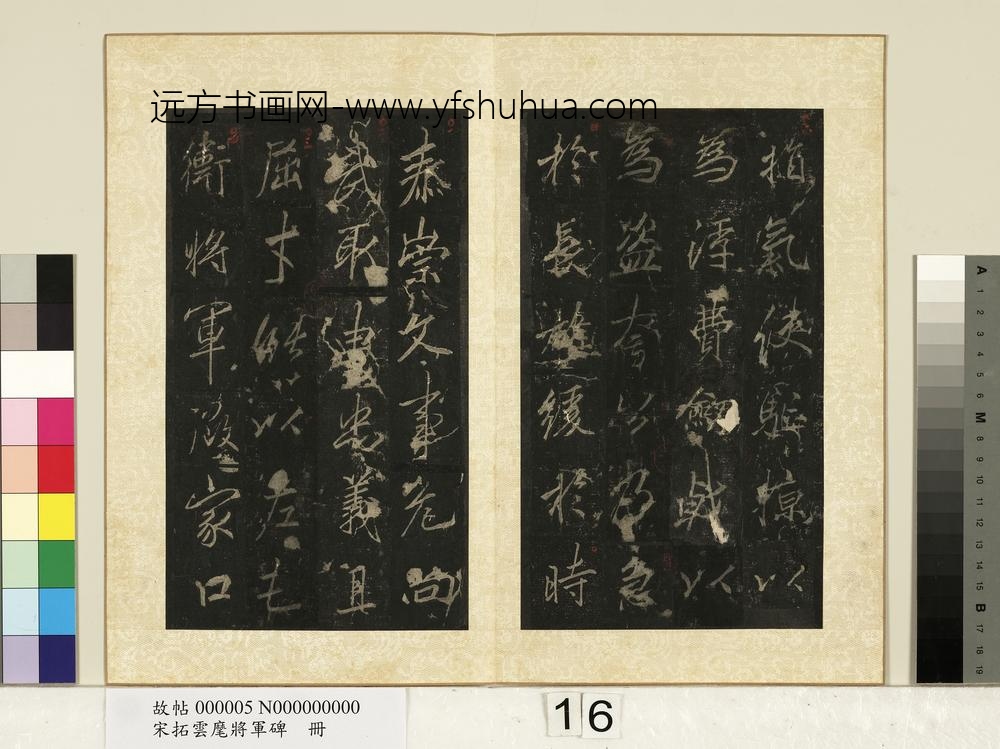 远方书画网-www.yfshuhua.com
指氣使驅掠以
為浮費劍戟以
為盜奮以為急
於長難緩於時
泰崇文事危尚
武取忠義且
屈才能以左
衛將軍家口
故帖 000005 N000000000
宋拓雲麾將軍碑 冊
16
A 1 2 3 4 5 6 M 8 9 10 11 12 13 14 15 B 17 18 19